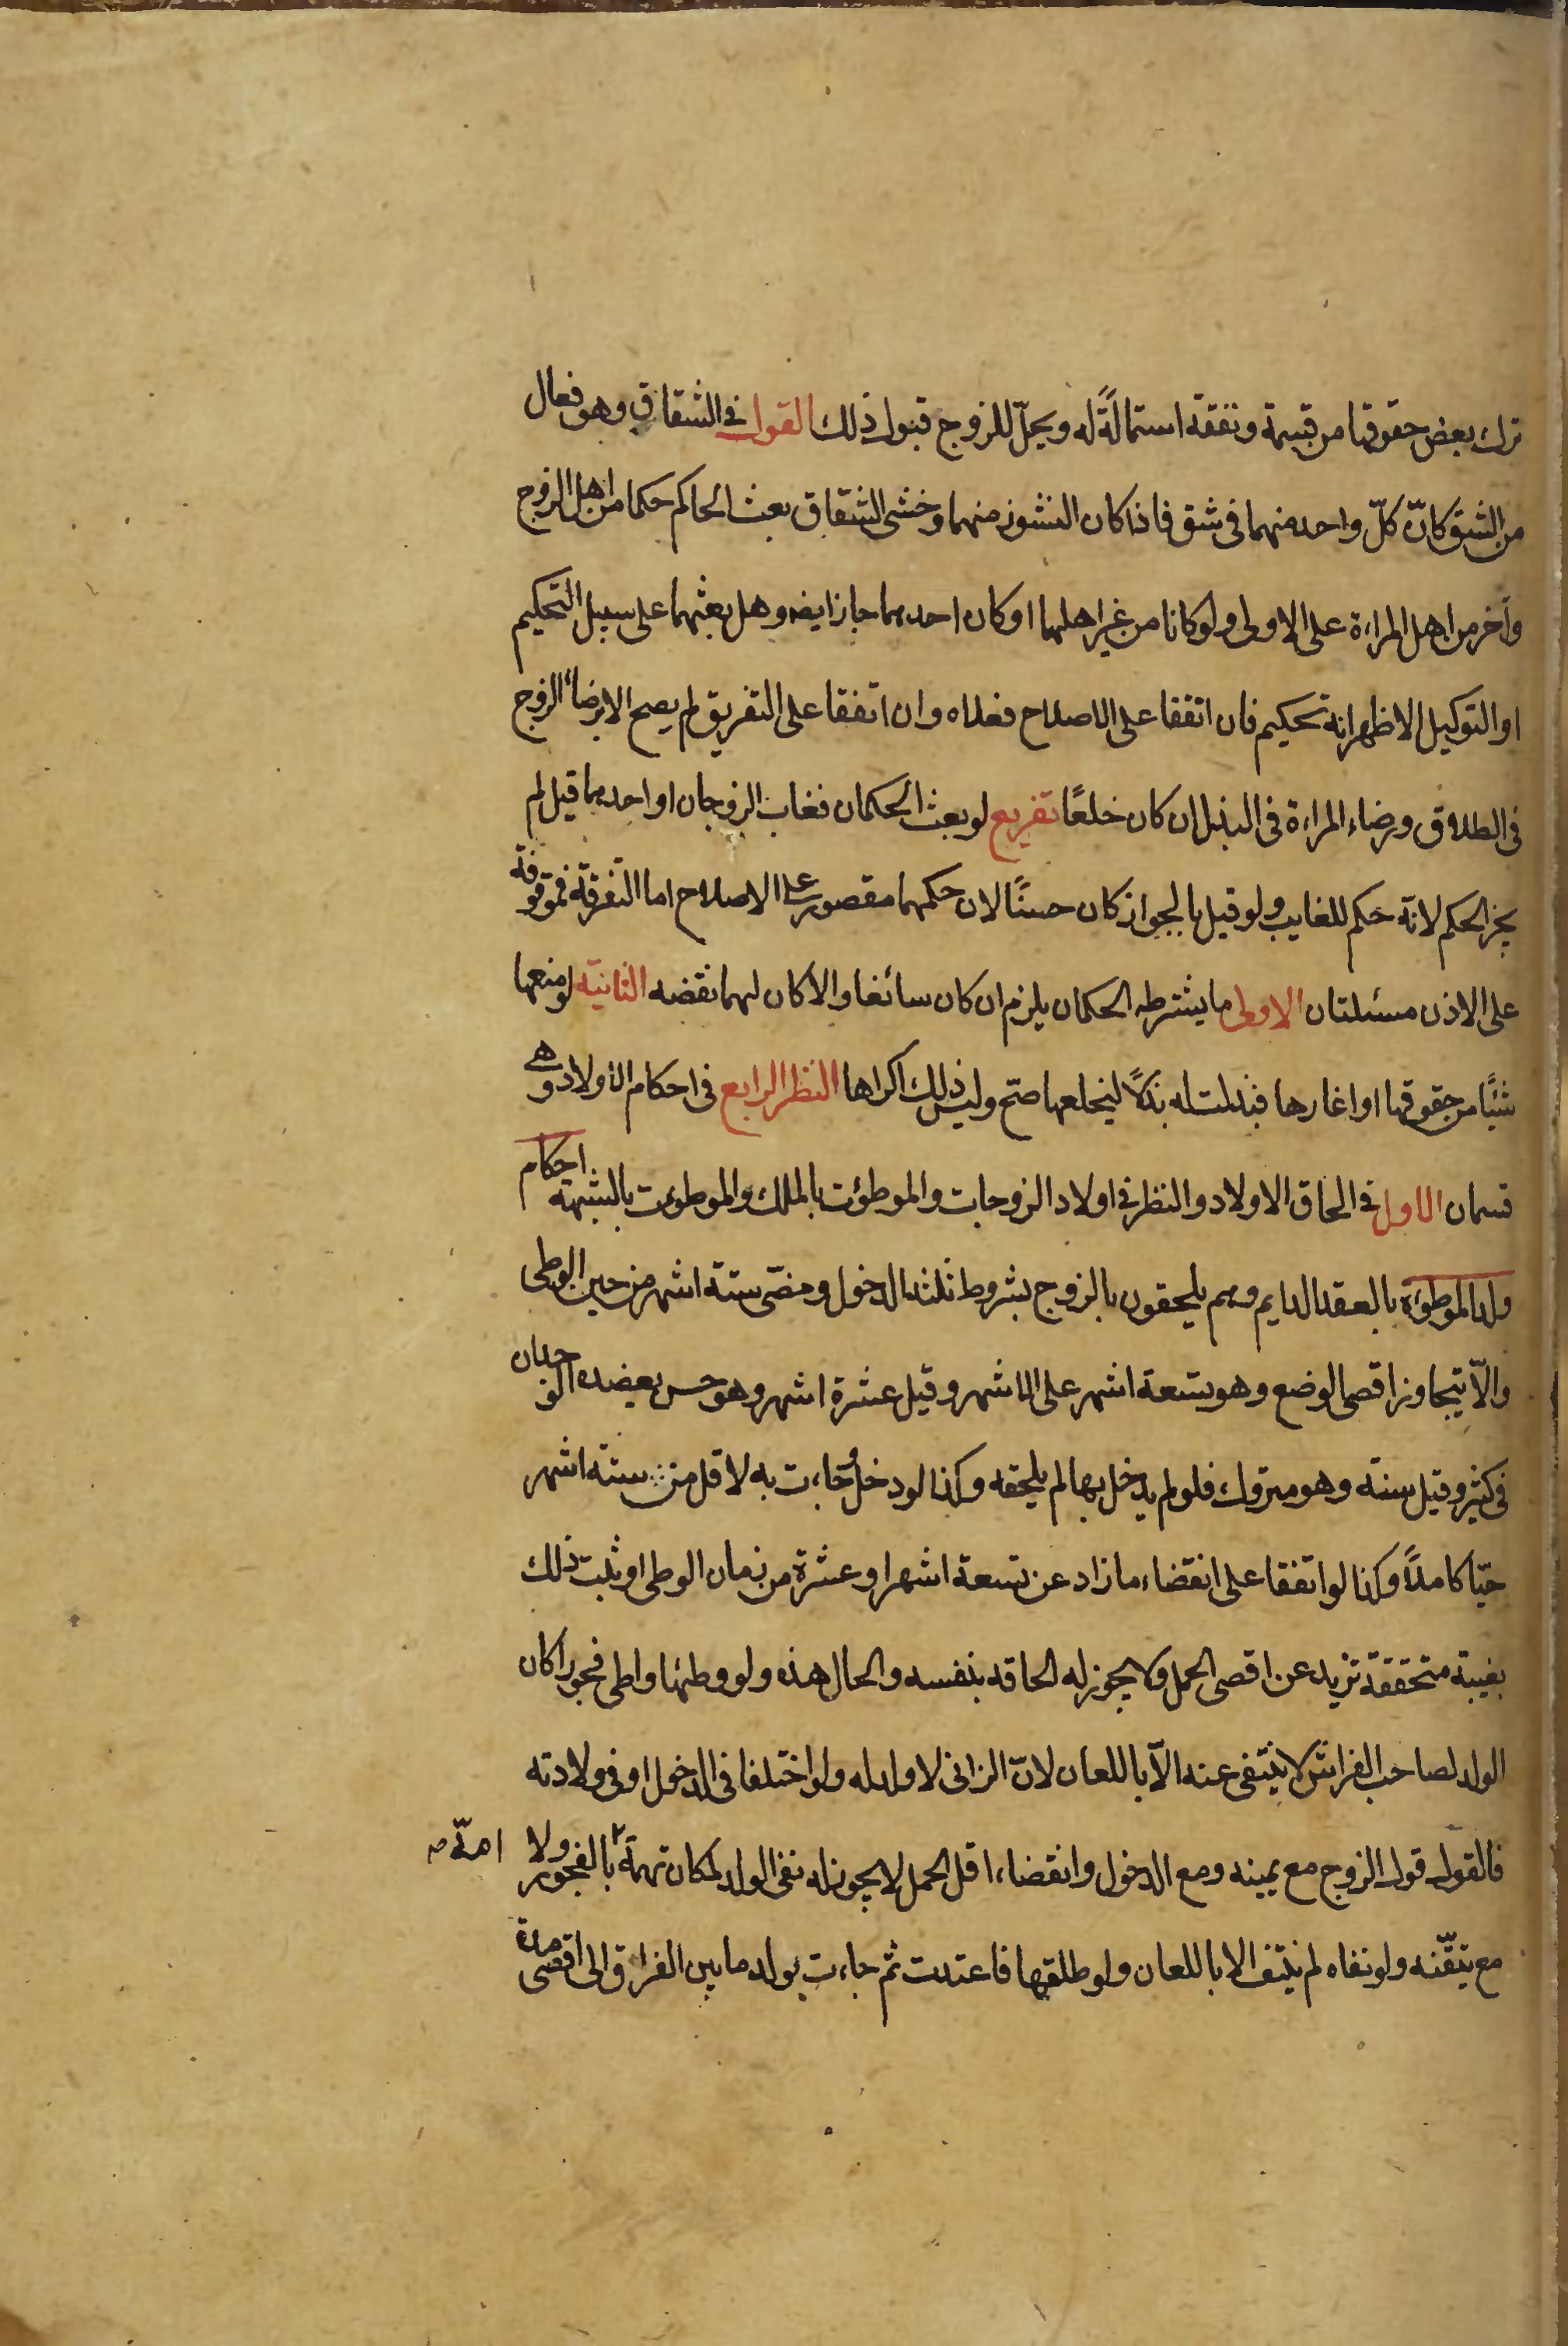 ترك بعض حقوقها من قسمة ونفقة استمالةً له ويحلّ للزوج قبول ذلك القول فى الشقاق وهو فعال
من الشق كانّ كلّ واحد منهما فى شق فاذا كان النشوز منهما وخشى الشقاق بعث الحاكم حكما من اهل الزوج
وآخر من اهل المراءة على الاولى ولو كانا من غير اهلهما او كان احدهما جاز ايضه وهل بعثهما على سبيل التحكيم
او التوكيل الاظهر انه تحكيم فان اتفقا على الاصلاح فعلاه وان اتفقا على التفريق لم يصح الا برضاء الزوج
فى الطلاق ورضاء المراءة فى البذل ان كان خلعًا تفريع لو بعث الحكمان فغاب الزوجان او احدهما قيل لم
يجز الحكم لانه حكم للغايب ولو قيل بالجواز كان حسنًا لان حكمهما مقصور على الاصلاح اما التفرقة فموقوفة
على الاذن مسئلتان الاولى ما يشترطه الحكمان يلزم ان كان سائغا والا كان لهما نقضه الثانية لو منعها
شيئًا من حقوقها او اغارها فبذلت له بذلاً ليخلعها صح وليس ذلك اكراها النظر الرابع فى احكام الاولاد وهى
قسمان الاول فى الحاق الاولاد والنظر فى اولاد الزوجات والموطؤت بالملك والموطؤت بالشبهة احكام
ولد الموطؤة بالعقد الدايم وهم يلحقون بالزوج بشروط ثلثة الدخول ومضى ستة اشهر من حين الوطى
والّا يتجاوز اقصى الوضع وهو تسعة اشهر على الاشهر وقيل عشرة اشهر وهو حسن يعضده الوجدان
فى كثير وقيل سنة وهو متروك فلو لم يدخل بها لم يلحقه وكذا لو دخل وجاءت به لاقل من ستة اشهر
حيّا كاملاً وكذا لو اتفقا على انقضاء ما زاد عن تسعة اشهر او عشرة من زمان الوطى او ثبت ذلك
بغيبة متحققة تزيد عن اقصى الحمل ولا يجوز له الحاقه بنفسه والحال هذه ولو وطئها واطى فجورا كان
الولد لصاحب الفراش لا ينتفى عنه الّا باللعان لانّ الزانى لا ولد له ولو اختلفا فى الدخول او فى ولادته
فالقول قول الزوج مع يمينه ومع الدخول وانقضاء اقل الحمل لا يجوز له نفى الولد لمكان تهمة بالفجور ولا
امّه
مع تيقّنه ولو نفاه لم ينتف الا باللعان ولو طلقها فاعتدت ثم جاءت بولد ما بين الفراق الى اقصى مدة